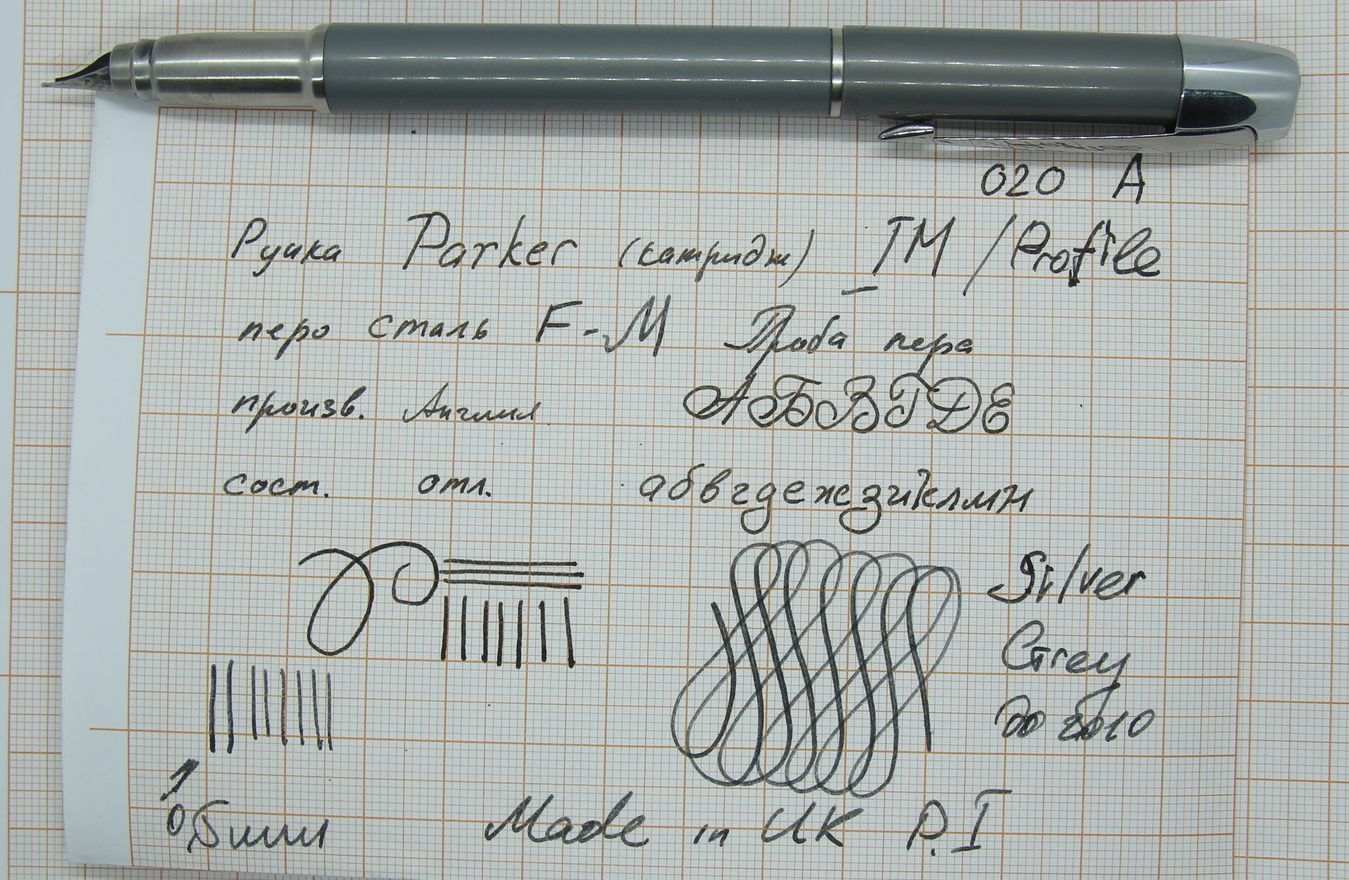 020 А
Ручка Parker (катридж) IM / Profile
перо сталь F-M Проба пера
произв. Англия АБВГДЕ
сост. отл. абвгдежзиклмн
Silver
Grey
до 2010
0,5 мм
Made in UK P.I